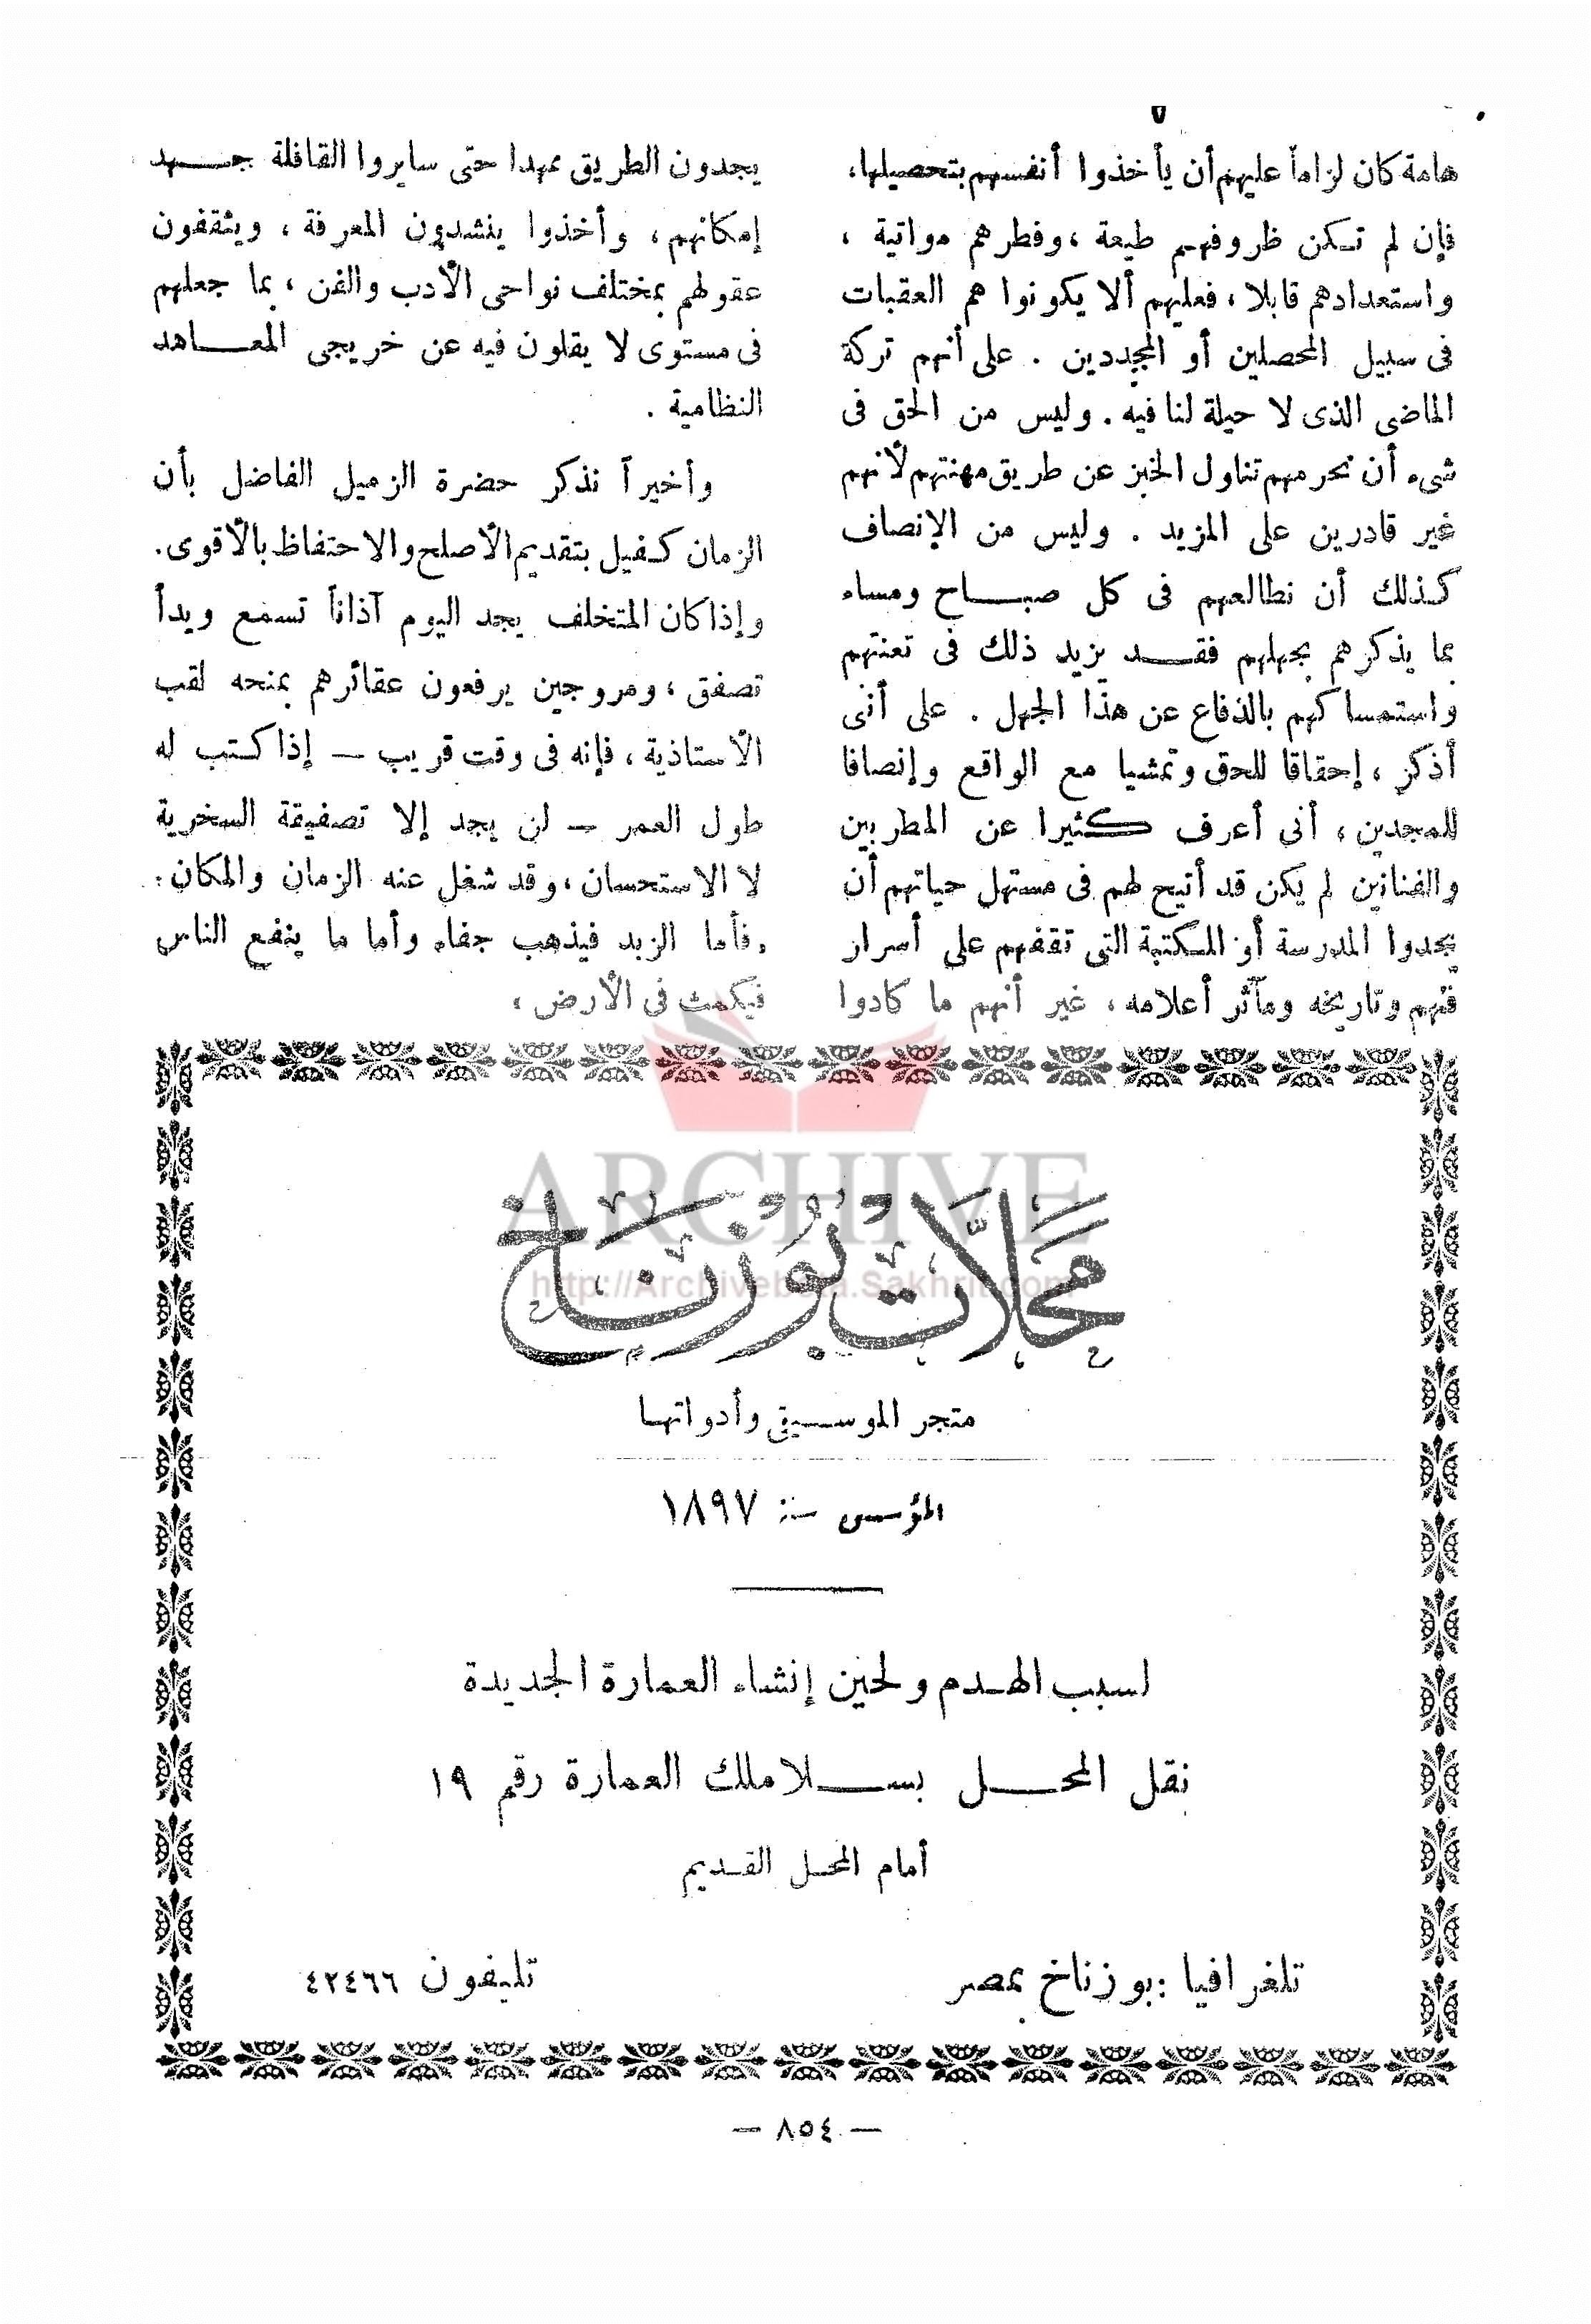 ٧
هامة كان لزاماً عليهم أن يأخذوا أنفسهم بتحصيلها،
فإن لم تكن ظروفهم طيعة ، وفطرهم مواتية ،
واستعدادهم قابلا ، فعليهم ألا يكونوا هم العقبات
فى سبيل المحصلين أو المجددين . على أنهم تركة
الماضى الذى لا حيلة لنا فيه . وليس من الحق فى
شىء أن نحرمهم تناول الخبز عن طريق مهنتهم لأنهم
غير قادرين على المزيد . وليس من الإنصاف
كذلك أن نطالعهم فى كل صباح ومساء
بما يذكرهم بجهلهم فقد يزيد ذلك فى تعنتهم
واستمساكهم بالدفاع عن هذا الجهل . على أنى
أذكر ، إحقاقا للحق وتمشيا مع الواقع وإنصافا
للمجدين ، أنى أعرف كثيرا عن المطربين
والفنانين لم يكن قد أتيح لهم فى مستهل حياتهم أن
يجدوا المدرسة أو المكتبة التى تقفهم على أسرار
فنهم وتاريخه ومآثر أعلامه ، غير أنهم ما كادوا
يجدون الطريق ممهدا حتى سايروا القافلة جهد
إمكانهم ، وأخذوا ينشدون المعرفة ، ويثقفون
عقولهم بمختلف نواحى الأدب والفن ، بما جعلهم
فى مستوى لا يقلون فيه عن خريجى المعاهد
النظامية .
وأخيراً نذكر حضرة الزميل الفاضل بأن
الزمان كفيل بتقديم الأصلح والاحتفاظ بالأقوى.
وإذا كان المتخلف يجد اليوم آذاناً تسمع ويدأ
تصفق ، ومروجين يرفعون عقائرهم بمنحه لقب
الأستاذية ، فإنه فى وقت قريب — إذا كتب له
طول العمر — لن يجد إلا تصفيقة السخرية
لا الاستحسان ، وقد شغل عنه الزمان والمكان.
«فأما الزبد فيذهب جفاء وأما ما ينفع الناس
فيمكث فى الأرض»
ARCHIVE
http://Archivebeta.Sakhrit.com
محلات بوزناخ
متجر الموسيقى وأدواتها
المؤسس سنة ١٨٩٧
لسبب الهدم ولحين إنشاء العمارة الجديدة
نقل المحل بسلاملك العمارة رقم ١٩
أمام المحل القديم
تلغرافيا : بوزناخ بمصر
تليفون ٤٢٤٦٦
— ٨٥٤ —